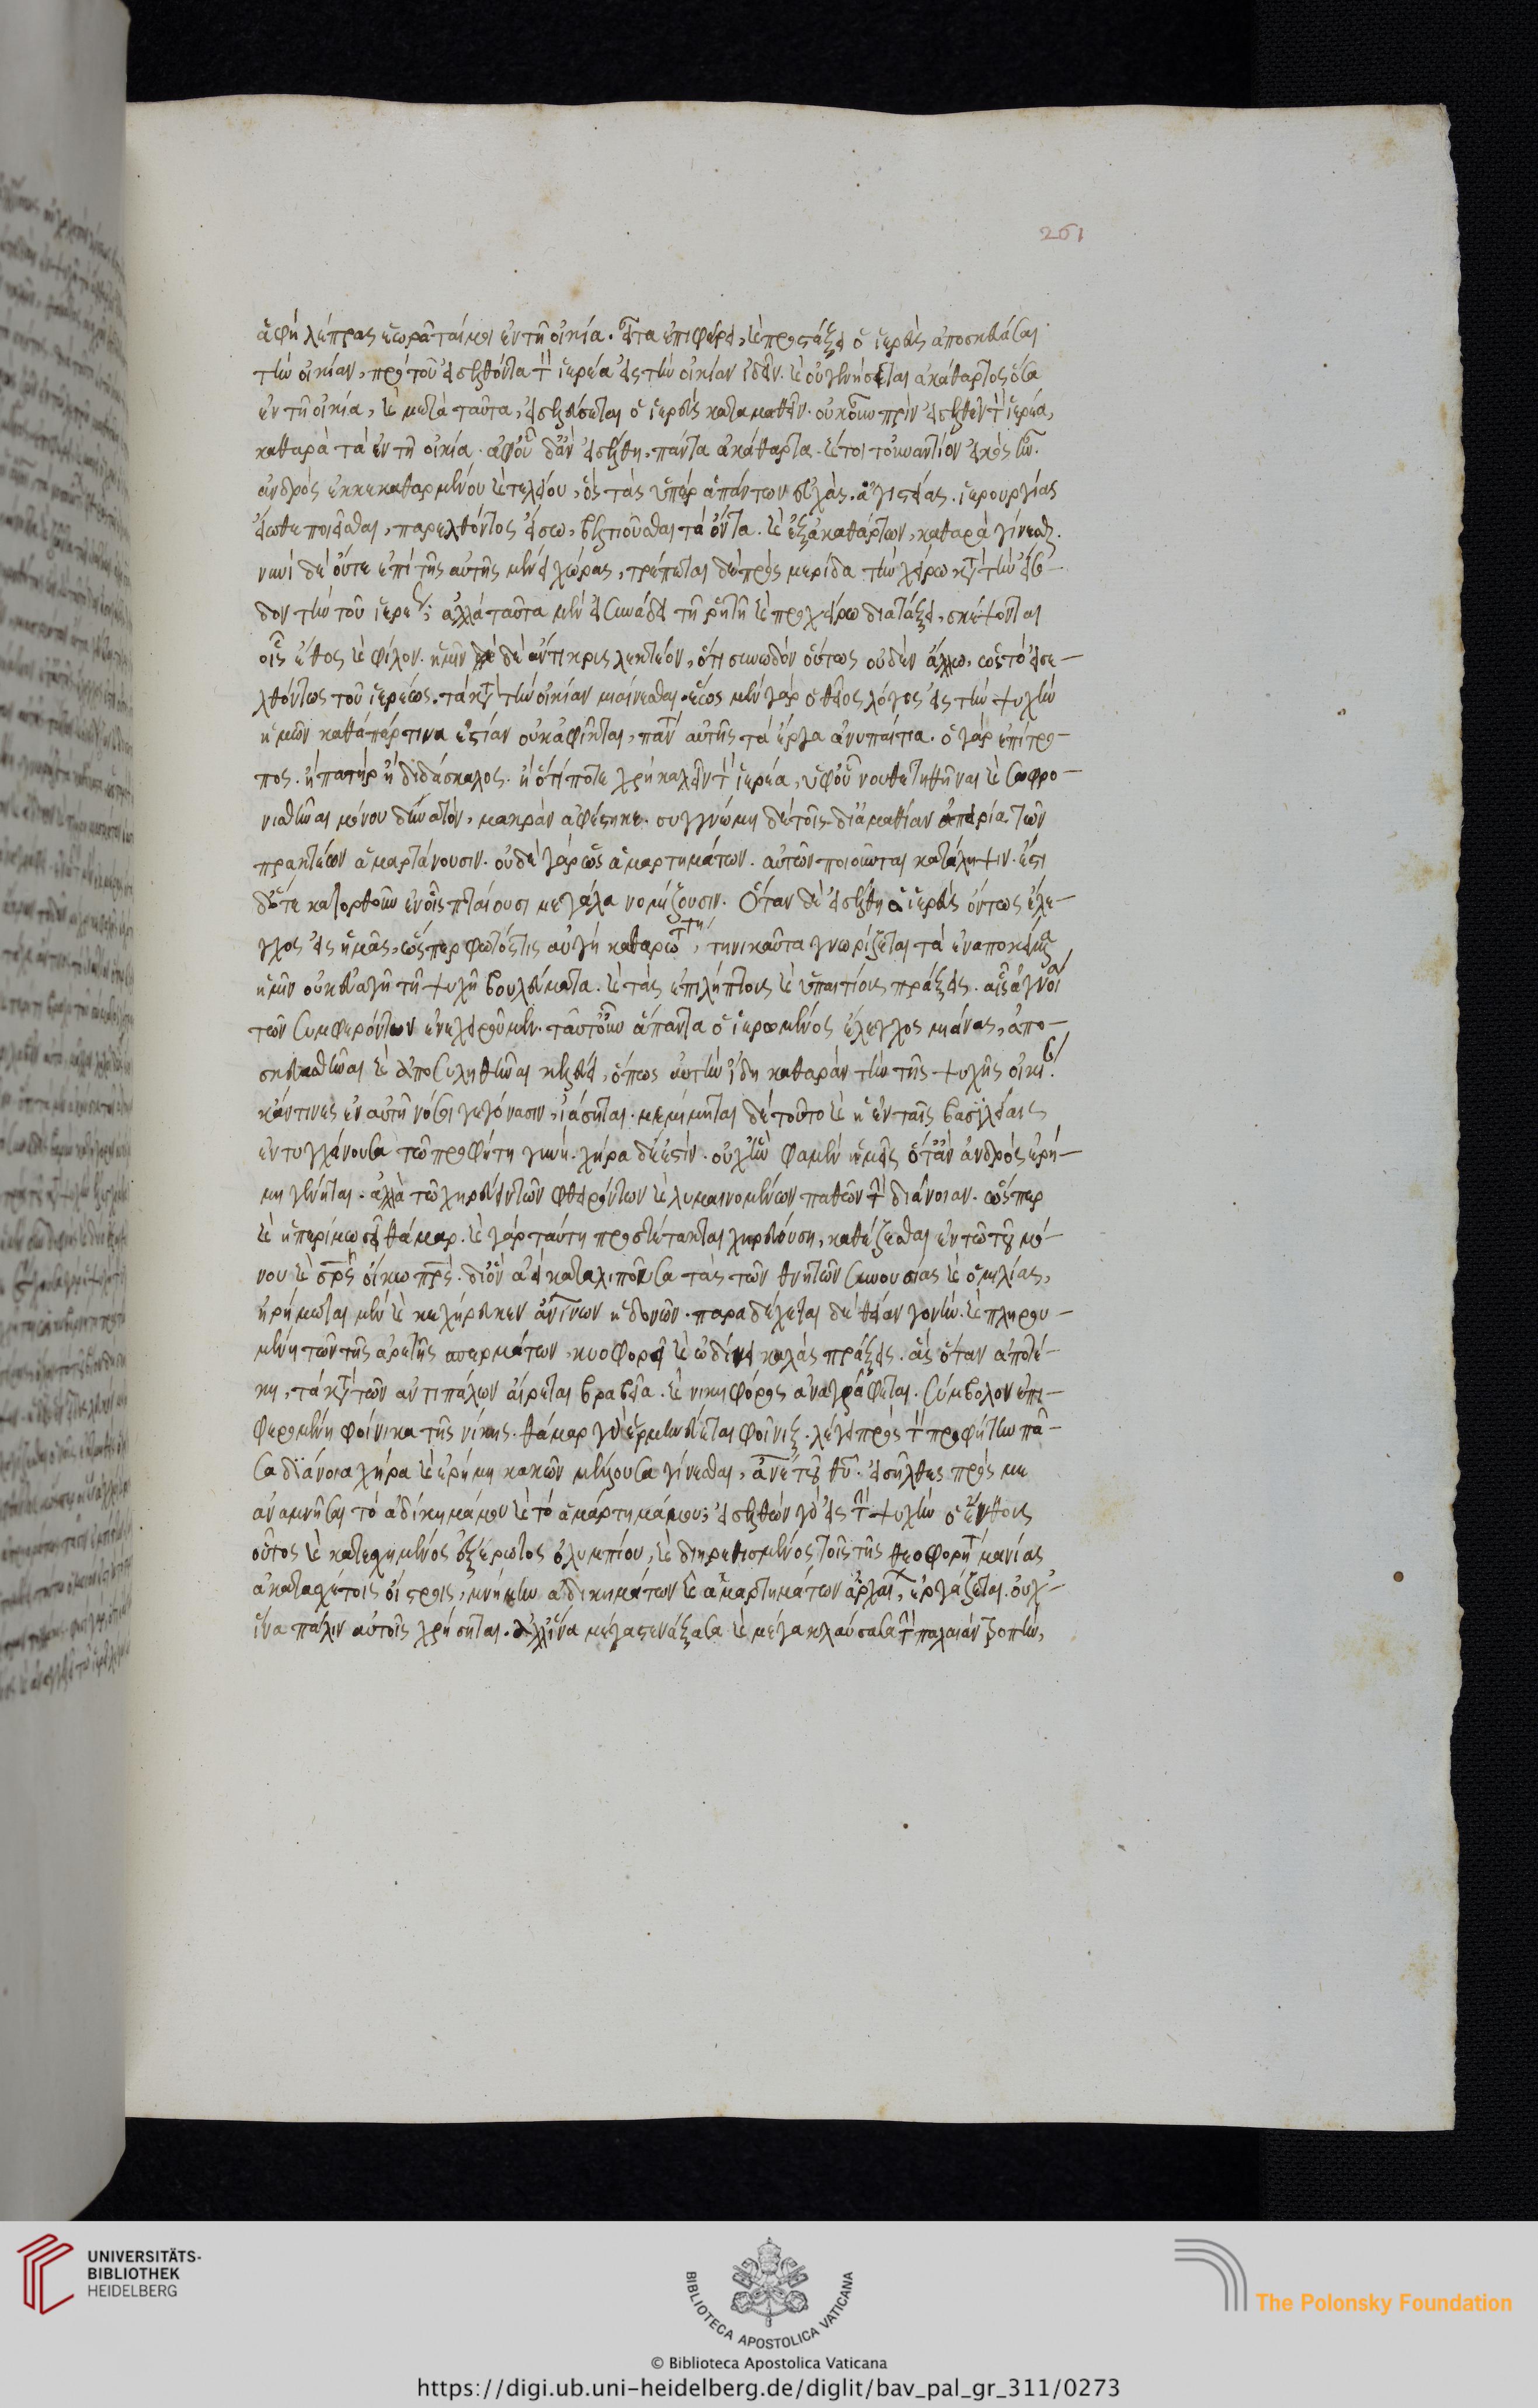 261
ἁφὴ λέπρας ἑώραταί μοι ἐν τῇ οἰκίᾳ. εἶτα ἐπιφέρει, καὶ προστάξει ὁ ἱερεὺς ἀποσκευάσαι
τὴν οἰκίαν, πρὸ τοῦ εἰσελθόντα τὸν ἱερέα εἰς τὴν οἰκίαν ἰδεῖν. καὶ οὐ γενήσεται ἀκάθαρτος ὅσα
ἐν τῇ οἰκίᾳ, καὶ μετὰ ταῦτα, εἰσελεύσεται ὁ ἱερεὺς καταμαθεῖν. οὐκοῦν πρὶν εἰσελθεῖν τὸν ἱερέα,
καθαρὰ τὰ ἐν τῇ οἰκίᾳ. ἀφ' οὗ δ' ἂν εἰσέλθῃ, πάντα ἀκάθαρτα. καί τοι τοὐναντίον εἰκὸς ἦν.
ἀνδρὸς ἐκκεκαθαρμένου καὶ τελείου, ὃς τὰς ὑπὲρ ἁπάντων εὐχὰς. ἁγιστείας. ἱερουργίας
εἴωθε ποιεῖσθαι, παρελθόντος εἴσω, βελτιοῦσθαι τὰ ὄντα. καὶ ἐξ ἀκαθάρτων, καθαρὰ γίνεσθαι.
νυνὶ δὲ οὔτε ἐπὶ τῆς αὐτῆς μένει χώρας, τρέπεται δὲ πρὸς μερίδα τὴν χείρω κατὰ τὴν εἴσο-
δον τὴν τοῦ ἱερέως; ἀλλὰ ταῦτα μὲν εἰ συνάδει τῇ ῥητῇ καὶ προχείρῳ διατάξει, σκέψονται
οἷς ἔθος καὶ φίλον. ἡμῖν δὲ ἄντικρις λεκτέον, ὅτι συνῳδὸν οὕτως οὐδὲν ἄλλῳ, ὡς τὸ εἰσε-
λθόντως τοῦ ἱερέως. τὰ κατὰ τὴν οἰκίαν μιαίνεσθαι. ἕως μὲν γὰρ ὁ θεῖος λόγος εἰς τὴν ψυχὴν
ἡμῶν καθάπέρ τινα ἑστίαν οὐκ ἀφῖκται, πάντ' αὐτῆς τὰ ἔργα ἀνυπαίτια. ὁ γὰρ ἐπίτρο-
πος. ἢ πατὴρ ἢ διδάσκαλος. ἢ ὅ τί ποτε χρὴ καλεῖν τὸν ἱερέα, ὑφ' οὗ νουθετηθῆναι καὶ σωφρο-
νισθῆναι μόνου δυνατόν, μακρὰν ἀφέστηκε. συγγνώμη δὲ τοῖς δι' ἀμαθίαν ἀπειρίᾳ τῶν
πρακτέων ἁμαρτάνουσιν. οὐδὲ γὰρ ὡς ἁμαρτημάτων. αὐτῶν ποιοῦνται κατάληψιν. ἔστι
δ' ὅτε κατορθοῦν ἐν οἷς πταίουσι μεγάλα νομίζουσιν. Ὅταν δὲ εἰσέλθῃ ὁ ἱερεὺς ὄντως ἔλε-
γχος εἰς ἡμᾶς, ὥσπερ φωτός τις αὐγὴ καθαρωτάτη, τηνικαῦτα γνωρίζεται τὰ ἐναποκείμενα
ἡμῖν οὐκ εὐαγῆ τῇ ψυχῇ βουλεύματα. καὶ τὰς ἐπιλήπτους καὶ ὑπαιτίους πράξεις. αἷς ἀγνοίᾳ
τῶν συμφερόντων ἐνεχειροῦμεν. ταῦτ' οὖν ἅπαντα ὁ ἱερωμένος ἔλεγχος μιάνας, ἀπο-
σκευασθῆναι καὶ ἀποσυληθῆναι κελεύει, ὅπως αὐτὴν ἴδῃ καθαρὰν τὴν τῆς ψυχῆς οἰκίαν.
κἄν τινες ἐν αὐτῇ νόσοι γεγόνασιν, ἰάσηται. μεμίμηται δὲ τοῦτο καὶ ἡ ἐν ταῖς βασιλείαις
ἐντυγχάνουσα τῷ προφήτῃ γυνή. χήρα δέ ἐστιν. οὐχ ἣν φαμὲν ἡμεῖς ὅταν ἀνδρὸς ἐρή-
μη γένηται. ἀλλὰ τῷ χηρεύειν τῶν φθειρόντων καὶ λυμαινομένων παθῶν τὴν διάνοιαν. ὥσπερ
καὶ ἡ περὶ μωσεῖ θάμαρ. καὶ γὰρ ταύτῃ προστέτακται χηρευούσῃ, καθέζεσθαι ἐν τῷ τοῦ μό-
νου καὶ σωτῆρος οἴκῳ πατρός. δι' ὃν ἀεὶ καταλιποῦσα τὰς τῶν θνητῶν συνουσίας καὶ ὁμιλίας,
ἠρήμωται μὲν καὶ κεχήρευκεν ἀνθρωπίνων ἡδονῶν. παραδέχεται δὲ θείαν γονήν. καὶ πληρου-
μένη τῶν τῆς ἀρετῆς σπερμάτων, κυοφορεῖ καὶ ὠδίνει καλὰς πράξεις. ἃς ὅταν ἀποτέ-
κῃ, τὰ κατὰ τῶν ἀντιπάλων αἴρεται βραβεῖα. καὶ νικηφόρος ἀναγράφεται. σύμβολον ἐπι-
φερομένη φοίνικα τῆς νίκης. θάμαρ γὰρ ἑρμηνεύεται φοίνιξ. λέγει πρὸς τὸν προφήτην πᾶ-
σα διάνοια χήρα καὶ ἐρήμη κακῶν μέλλουσα γίνεσθαι, ἄνθρωπε τοῦ θεοῦ. εἰσῆλθες πρὸς με
ἀναμνῆσαι τὸ ἀδίκημά μου καὶ τὸ ἁμάρτημά μου; εἰσελθὼν γὰρ εἰς τὴν ψυχὴν ὁ ἔνθους
οὗτος καὶ κατεσχημένος ἐξ ἔρωτος ὀλυμπίου, καὶ διηρεθισμένος τοῖς τῆς θεοφορήτου μανίας
ἀκατασχέτοις οἴστροις, μνήμην ἀδικημάτων καὶ ἁμαρτημάτων ἀρχαίων, ἐργάζεται. οὐχ
ἵνα πάλιν αὐτοῖς χρήσηται. ἀλλ' ἵνα μέγα στενάξασα καὶ μέγα κλαύσασα τὴν παλαιὰν τροπήν,
UNIVERSITÄTS-
BIBLIOTHEK
HEIDELBERG
BIBLIOTECA APOSTOLICA VATICANA
The Polonsky Foundation
© Biblioteca Apostolica Vaticana
https://digi.ub.uni-heidelberg.de/diglit/bav_pal_gr_311/0273